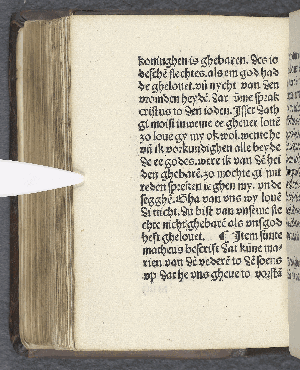 koninghen is ghebaren. des io
deschē slechtes. als em god had
de ghelouet. vñ nycht van den
vromden heydē. dar vm̄e sprak
cristus to den ioden. Isset dath
gi moisi inwene ee gheuet louē
zo loue gy my ok wol. wente he
vñ ik vorkundighen alle heyde
de ee godes. were ik van dē hei
den ghebarē. zo mochte gi mit
reden spreken teghen my. vnde
segghē. Gha van vns wy louē
di nicht. du bist van vnseme sle
chte nicht ghebarē als vns god
heft ghelouet. ¶ Item sunte
matheus bescrift dat kūne ma
rien van dē vederē to dē soens
vp dat he vns gheue to vorstā